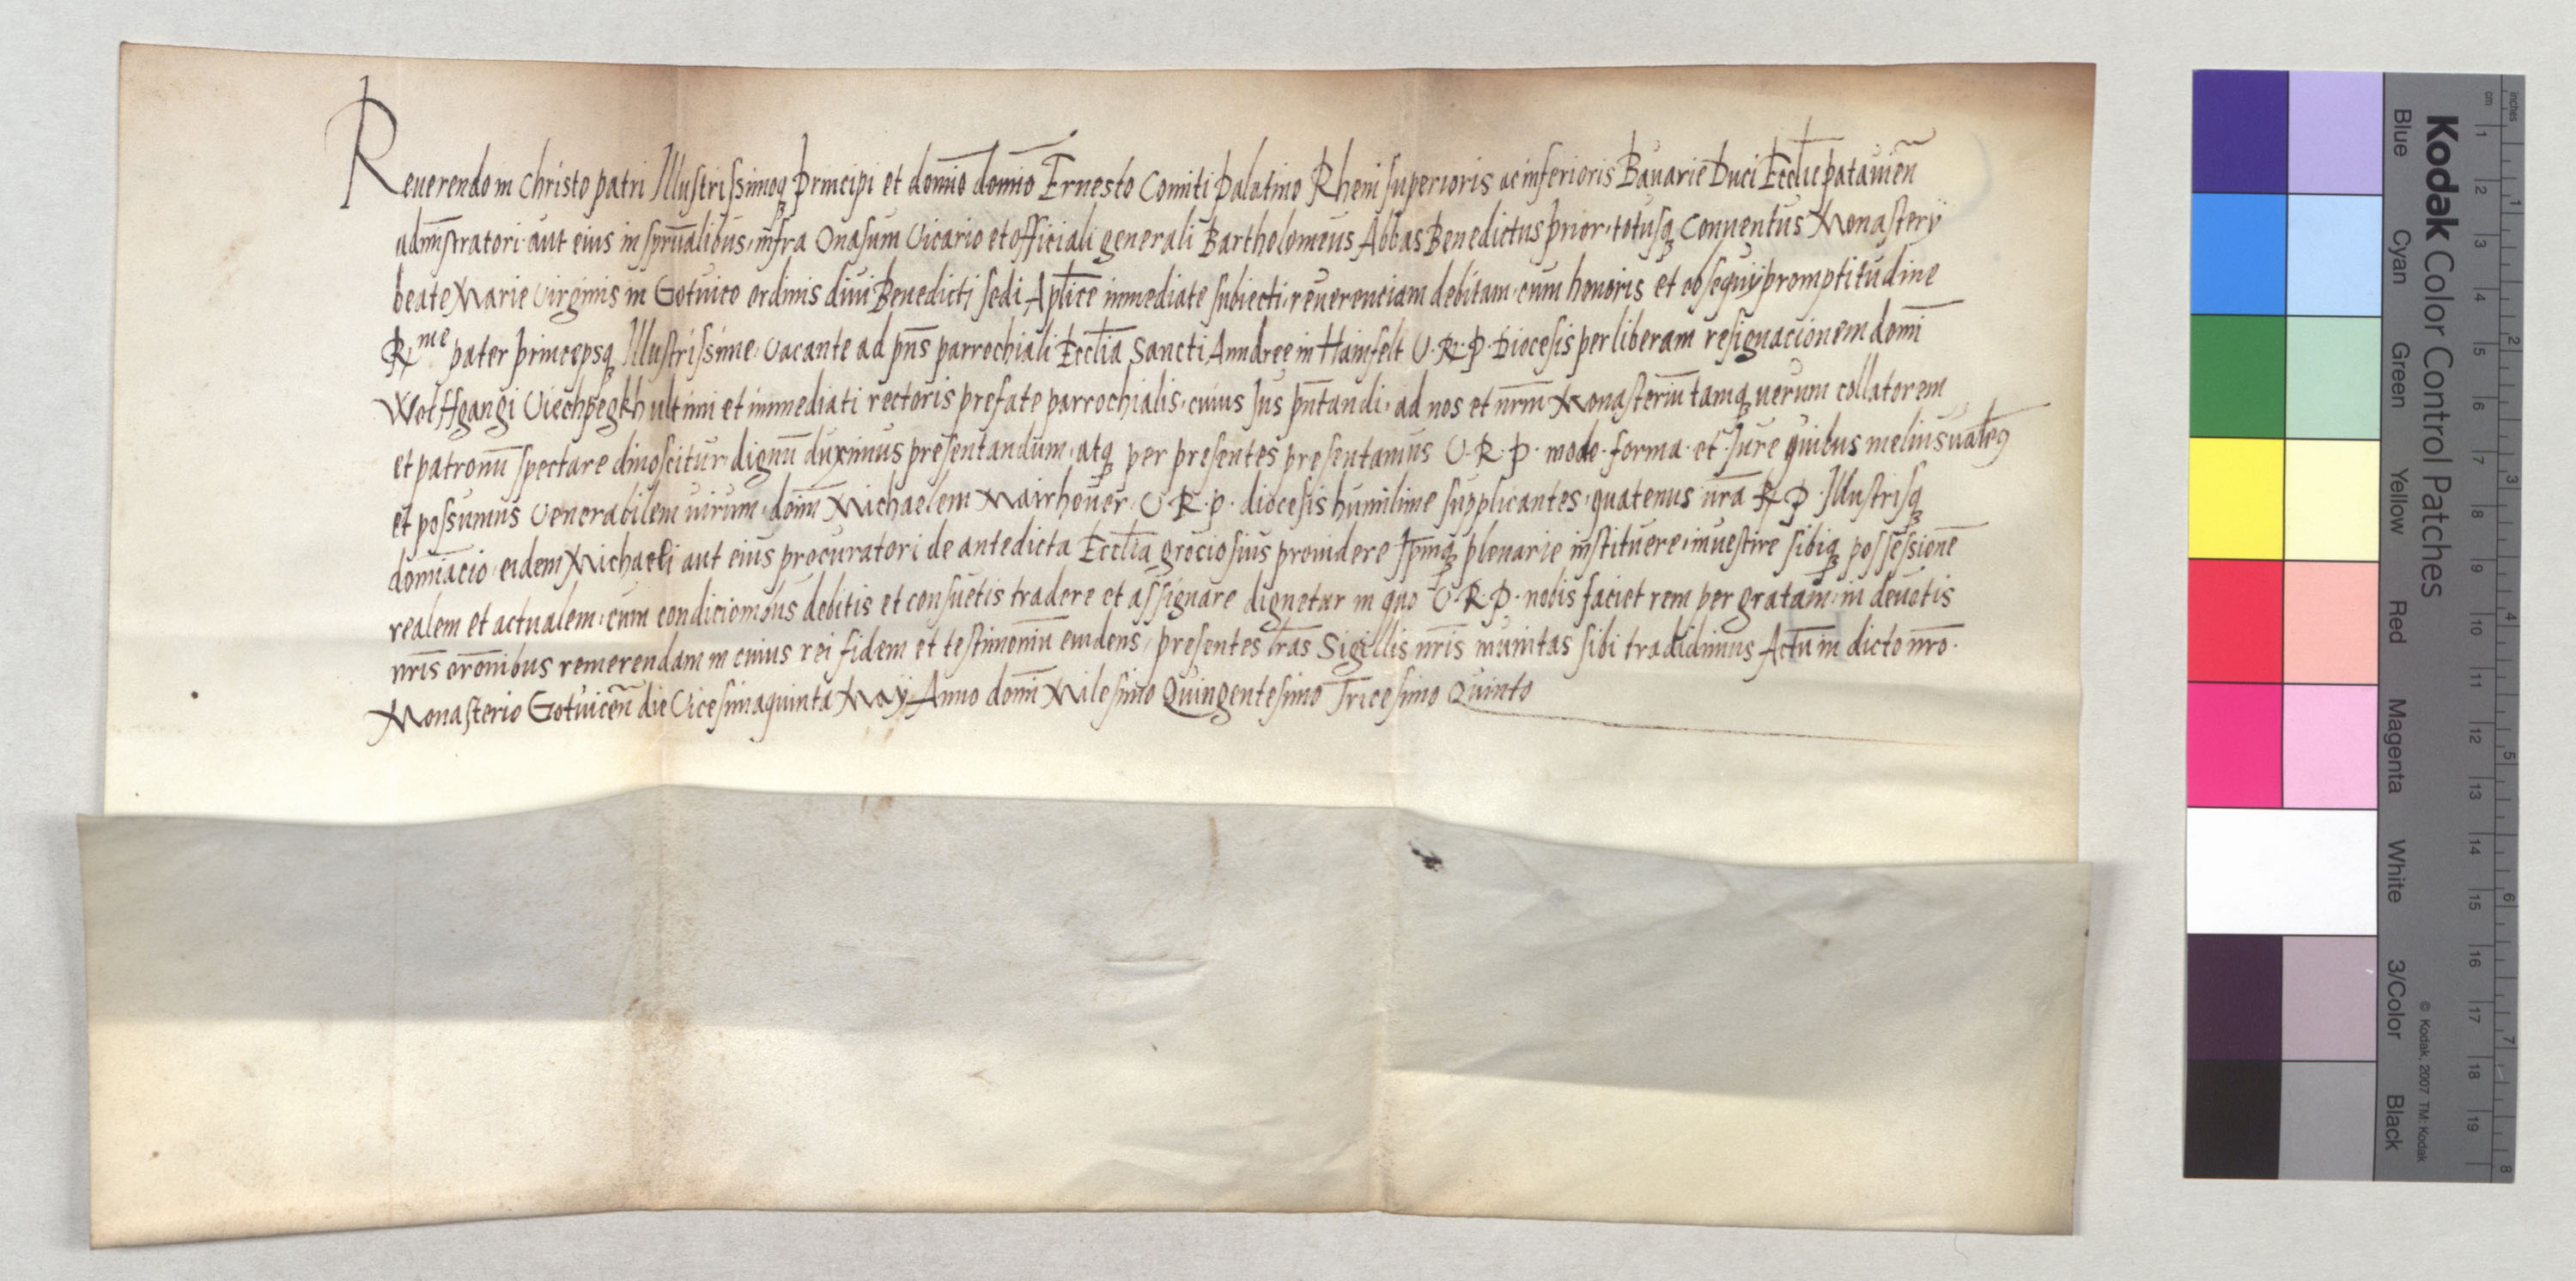 Reuerendo in Christo patri Illustrissimoq̃ principi et domĩo domĩo Ernesto Comiti Palatino Rheni superioris ac inferioris Bauarie Duci Eccl̃ie patauieñ
adm̃stratori aut eius in sp̃rũalibus infra Onasum Vicario et officiali generali Bartholomeus Abbas Benedictus prior totusq̃ Conuentus Monastery
beate Marie Virginis in Gotuico ordinis diui Benedicti sedi Ap̃lice immediate subiecti reuerenciam debitam cum honoris et obsequij promptitudine
Rme pater princepsq̃ Illustrissime Vacante ad pñs parrochiali Eccl̃ia Sancti Anndree in Hainfelt V. R. P. Diocesis per liberam resignacionem domĩ
Wolffgangi Viechpegkh ultimi et immediati rectoris prefate parrochialis cuius Jus pñtandi ad nos et nr̃m Monasteriũ tamq̃ uerum collatorem
et patronũ spectare dinoscitur dignũ duximus presentandum atq̃ per presentes presentamus V. R. P. modo forma et Jure quibus melius ualem9
et possumus Venerabilem uirum dom̃ Michaelem Mairhouer V. R. P. diocesis humilime supplicantes quatenus ur̃a R P Illustrisq̃
domĩacio eidem Michaeli aut eius procuratori de antedicta Eccl̃ia grociosius prouidere Ip̃mq̃ plenarie instituere inuestire sibiq̃ possessionẽ
realem et actualem cum condicionibus debitis et consuetis tradere et assignare dignetur in quo V. R. P. nobis faciet rem per gratam in deuotis
nr̃is orõnibus remerendam in cuius rei fidem et testimoniũ euidens presentes lr̃as Sigillis nr̃is munitas sibi tradidimus Actũ in dicto nr̃o
Monasterio Gotuiceñ die Vicesimaquinta Maij Anno domĩ Milesimo Quingentesimo Tricesimo Quinto
Kodak Color Control Patches
Blue Cyan Green Yellow Red Magenta White 3/Color Black
© Kodak, 2007 TM: Kodak
cm 1 2 3 4 5 6 7 8 9 10 11 12 13 14 15 16 17 18 19
inches 1 2 3 4 5 6 7 8